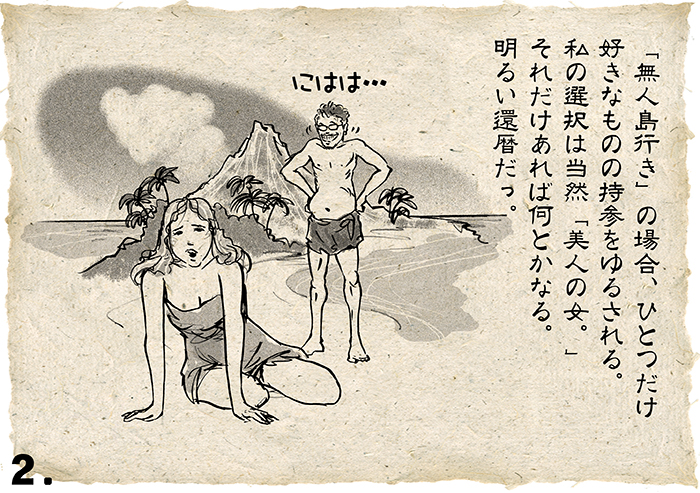 「無人島行き」の場合、ひとつだけ
好きなものの持参をゆるされる。
私の選択は当然「美人の女。」
それだけあれば何とかなる。
明るい還暦だっ。
にはは…
2.